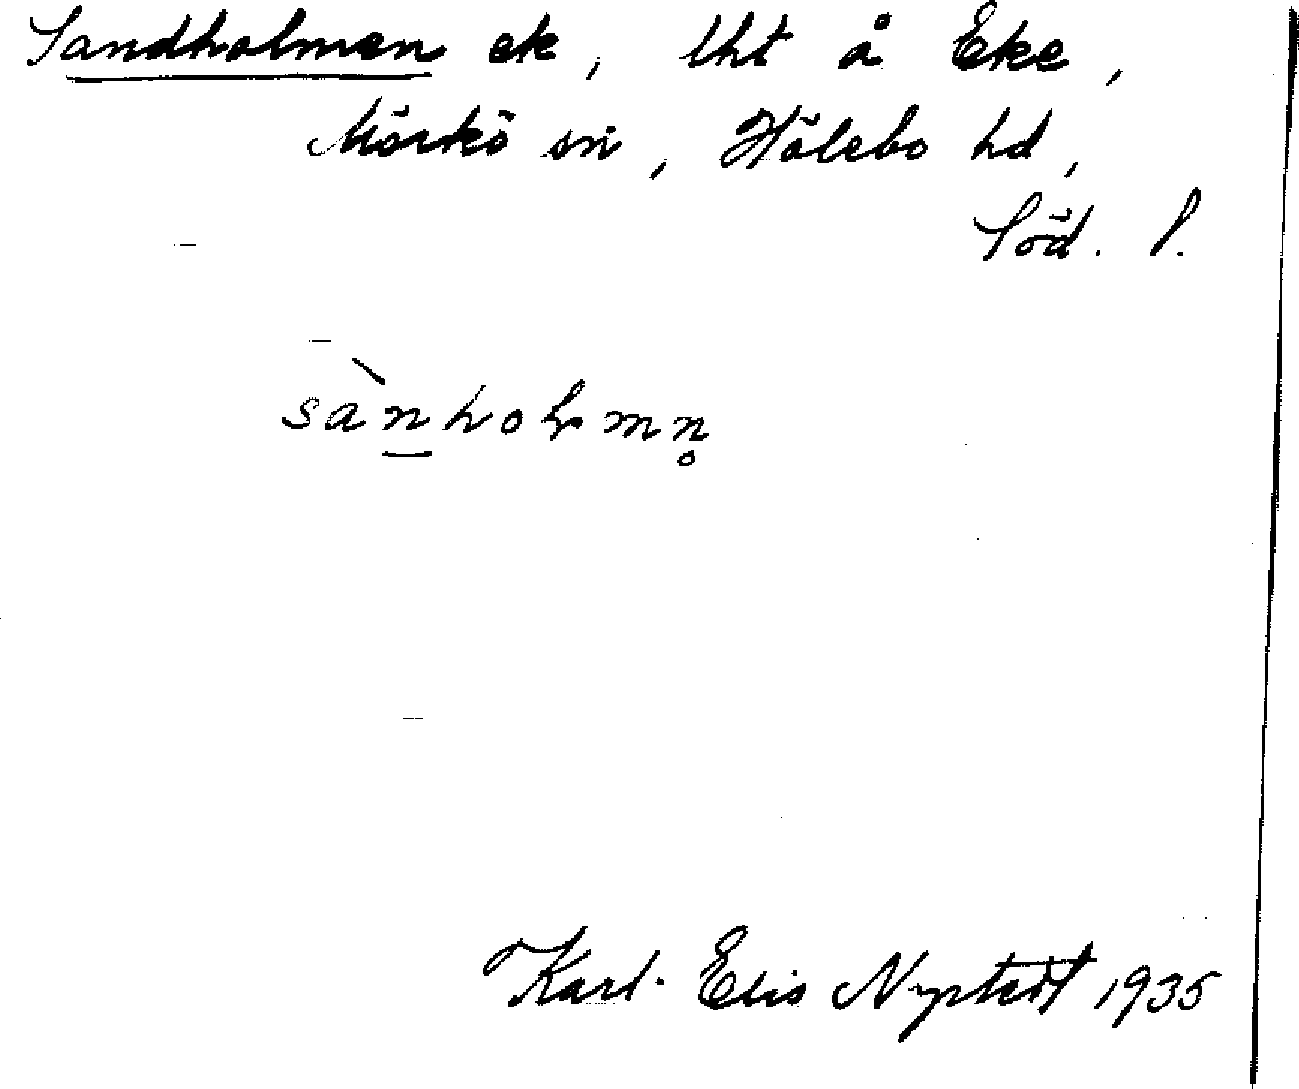 Sandholmen ek, lht å Eke,
Mörkö sn, Hölebo hd,
Söd. l.
sànholmn̥
Karl-Elis Nystedt 1935